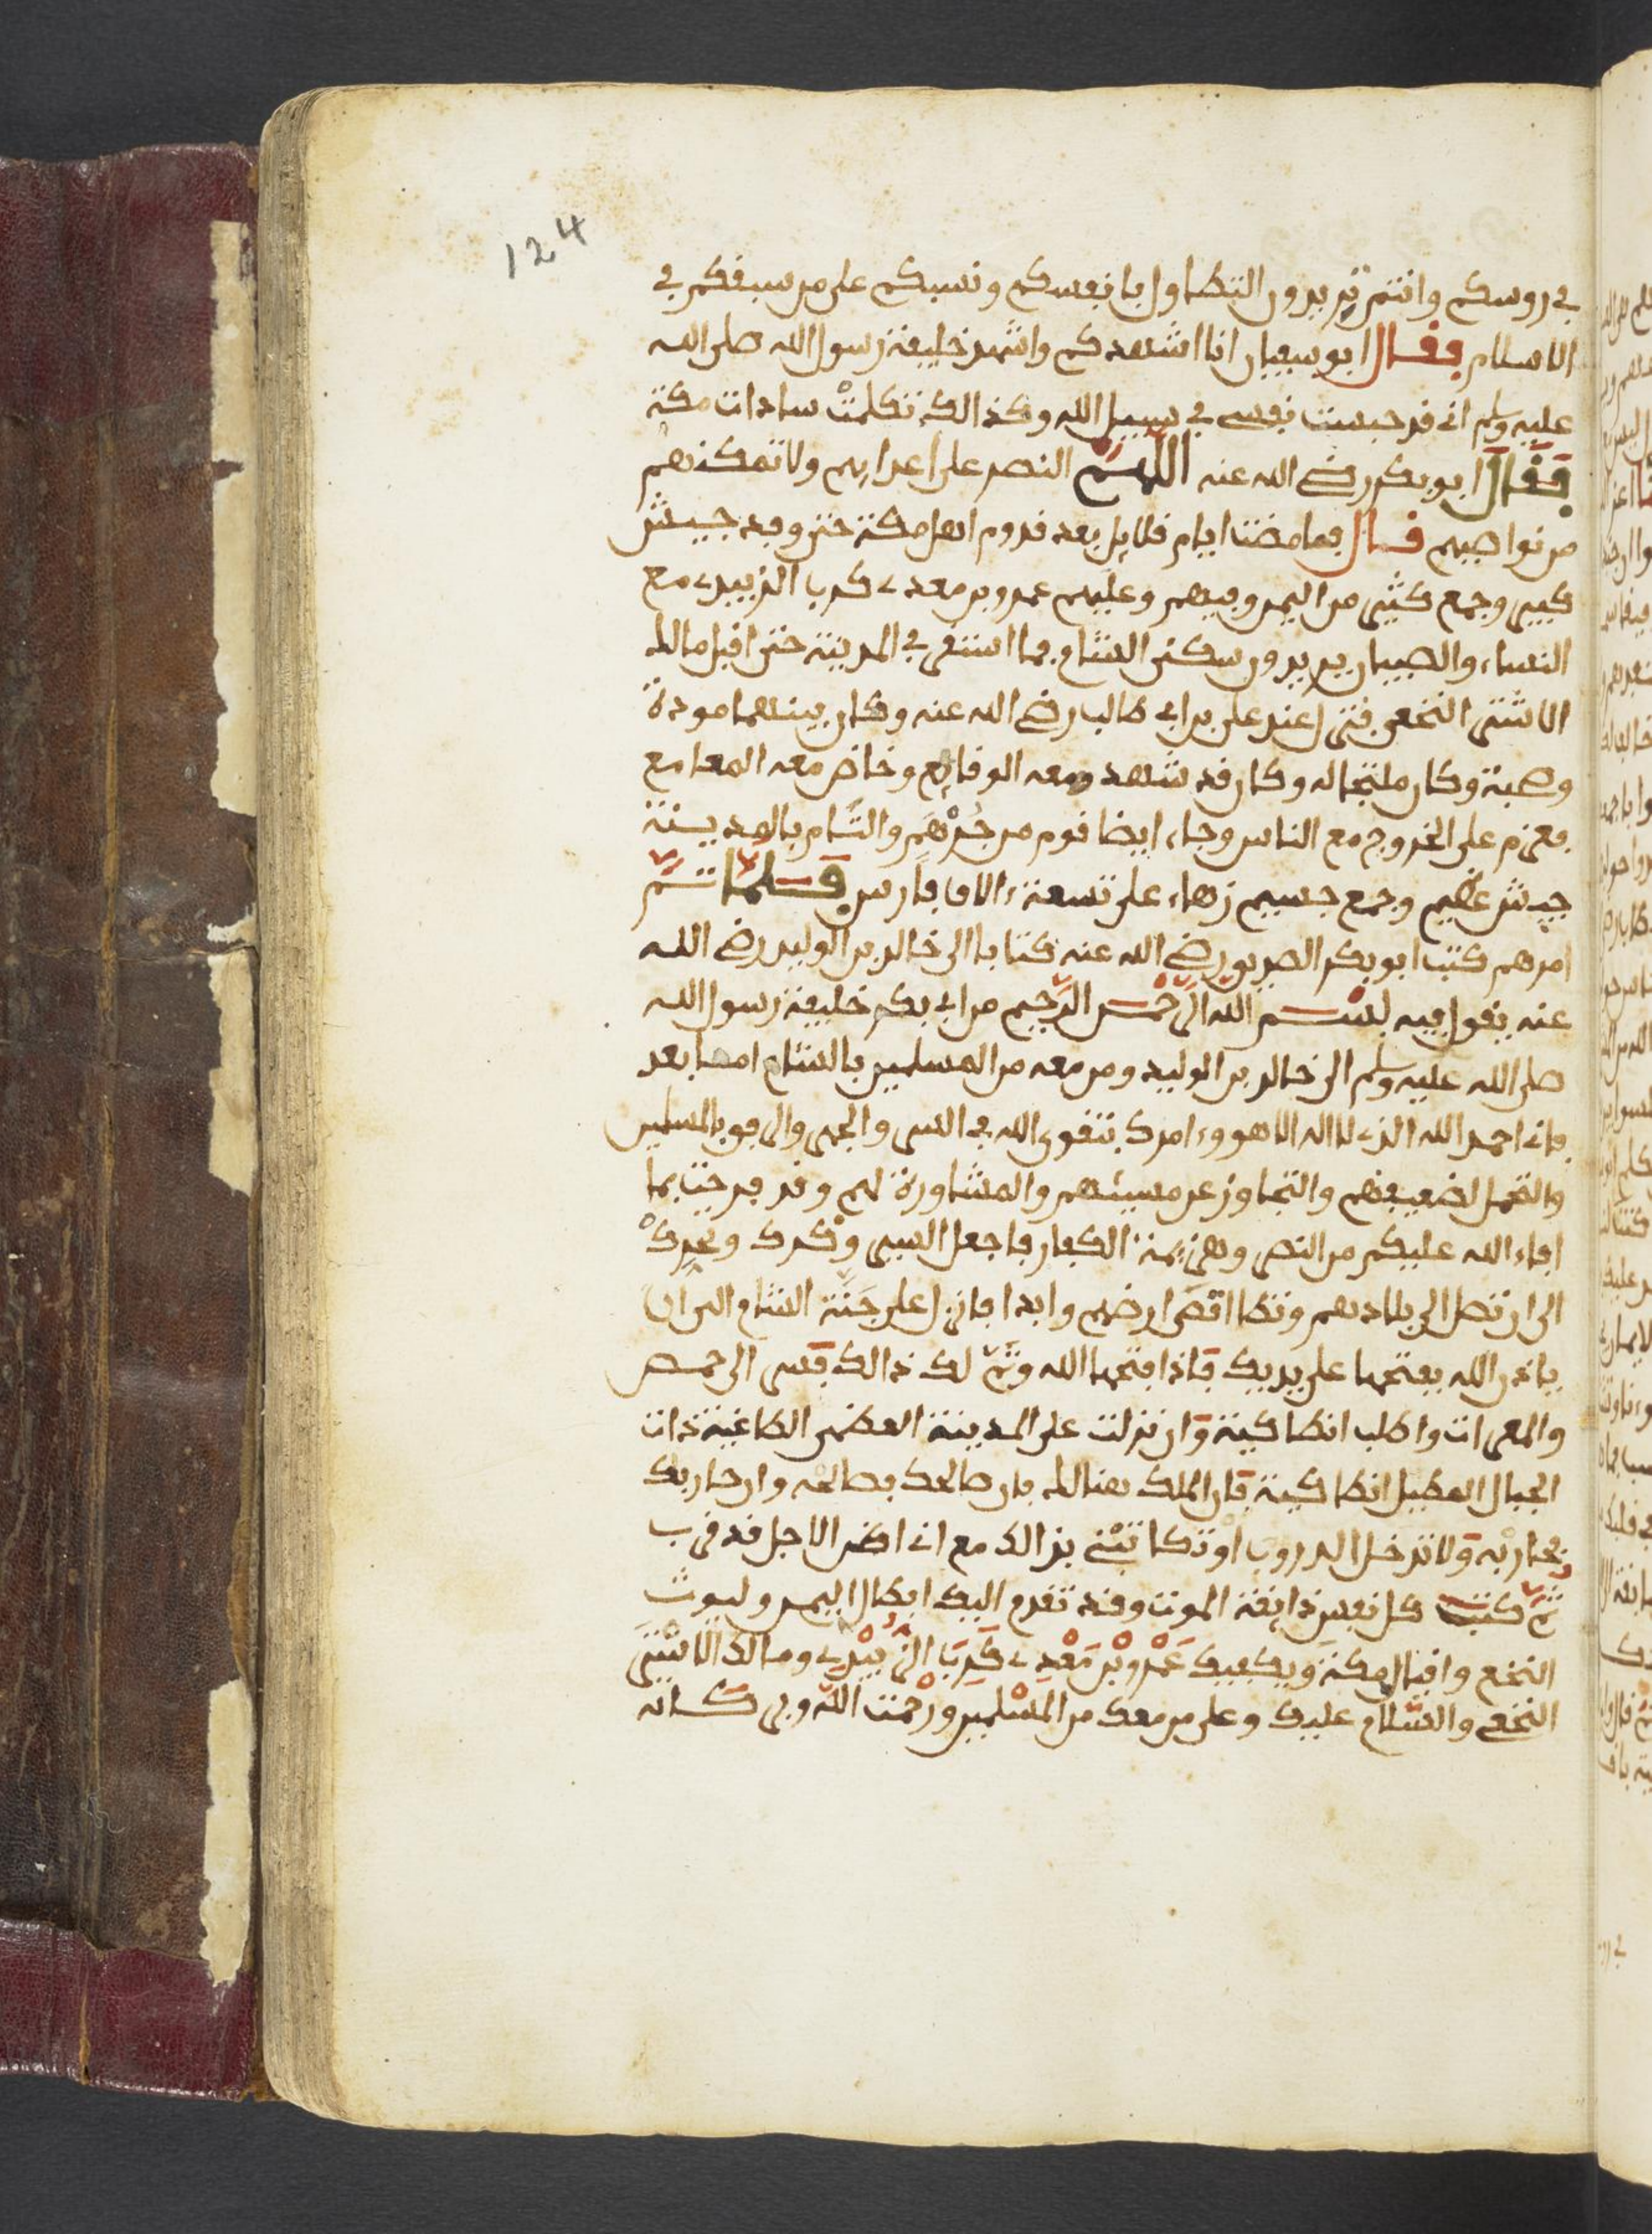 124
في روسكم وانتم تريدون التطاول بانفسكم ونسبكم على من سبقكم في
الاسلام فقال ابو سفيان انا اشهدكم واشهد خليفة رسول الله صلى الله
عليه وسلم اني قد حبست نفسي في سبيل الله وكذالك تكلمت سادات مكة
فقال ابو بكر رضي الله عنه اللهم النصر على اعدايهم ولا تمكنهم
من نواصيهم قال فما مضت ايام قلايل بعد قدوم اهل مكة حتى وفد جيش
كبير وجمع كثير من اليمن وفيهم وعليهم عمرو بن معدي كرب الزبيدي مع
النساء والصبيان يريدون سكنى الشام فما استقر في المدينة حتى اقبل مالك
الاشتر النخعي فنزل عند علي بن ابي طالب رضي الله عنه وكان بينهما مودة
وصبة وكان ملتجا له وكان قد شهد معه الوقايع وخاض معه المعامع
فعزم على الخروج مع الناس وجاء ايضا قوم من جرهم والتام بالمدينة
جيش عظيم وجمع جسيم زهاء على تسعة ءالاف فارس فلما تم
امرهم كتب ابو بكر الصديق رضي الله عنه كتابا الى خالد بن الوليد رضي الله
عنه يقول فيه بسم الله الرحمن الرحيم من ابي بكر خليفة رسول الله
صلى الله عليه وسلم الى خالد بن الوليد ومن معه من المسلمين بالشام اما بعد
فاني احمد الله الذي لا اله الا هو وءامرك بتقوى الله في السر والجهر والرفق بالمسلمين
والتحمل لضعيفهم والتجاوز عن مسيئهم والمشاورة لهم وقد فرحت بما
افاء الله عليكم من النصر وهزيمة الكفار فاجعل السير وكدك وعيدك
الى ان تصل الى بلادهم وتطا اقصى ارضهم وابدا فانزل على جنة الشام الى ان
ياذن الله بفتحها على يديك فاذا فتحها الله وتم لك ذالك فسر الى حمص
والمعرات واطلب انطاكية وان نزلت على المدينة العظمى الطاغية ذات
الجبال انطاكية فان الملك هنالك فان صالحك فصالحه وان حاربك
فحاربه ولا تدخل الدروب او تكاتبني بذالك مع اني اظن الاجل قد قرب
ثم كتب كل نفس ذايقة الموت وقد تقدم اليك ابطال اليمن وليوث
النخع واقيال مكة ويكفيك عمرو بن معدي كرب الزبيدي ومالك الاشتر
النخعي والسلام عليك وعلى من معك من المسلمين ورحمت الله وبركاته